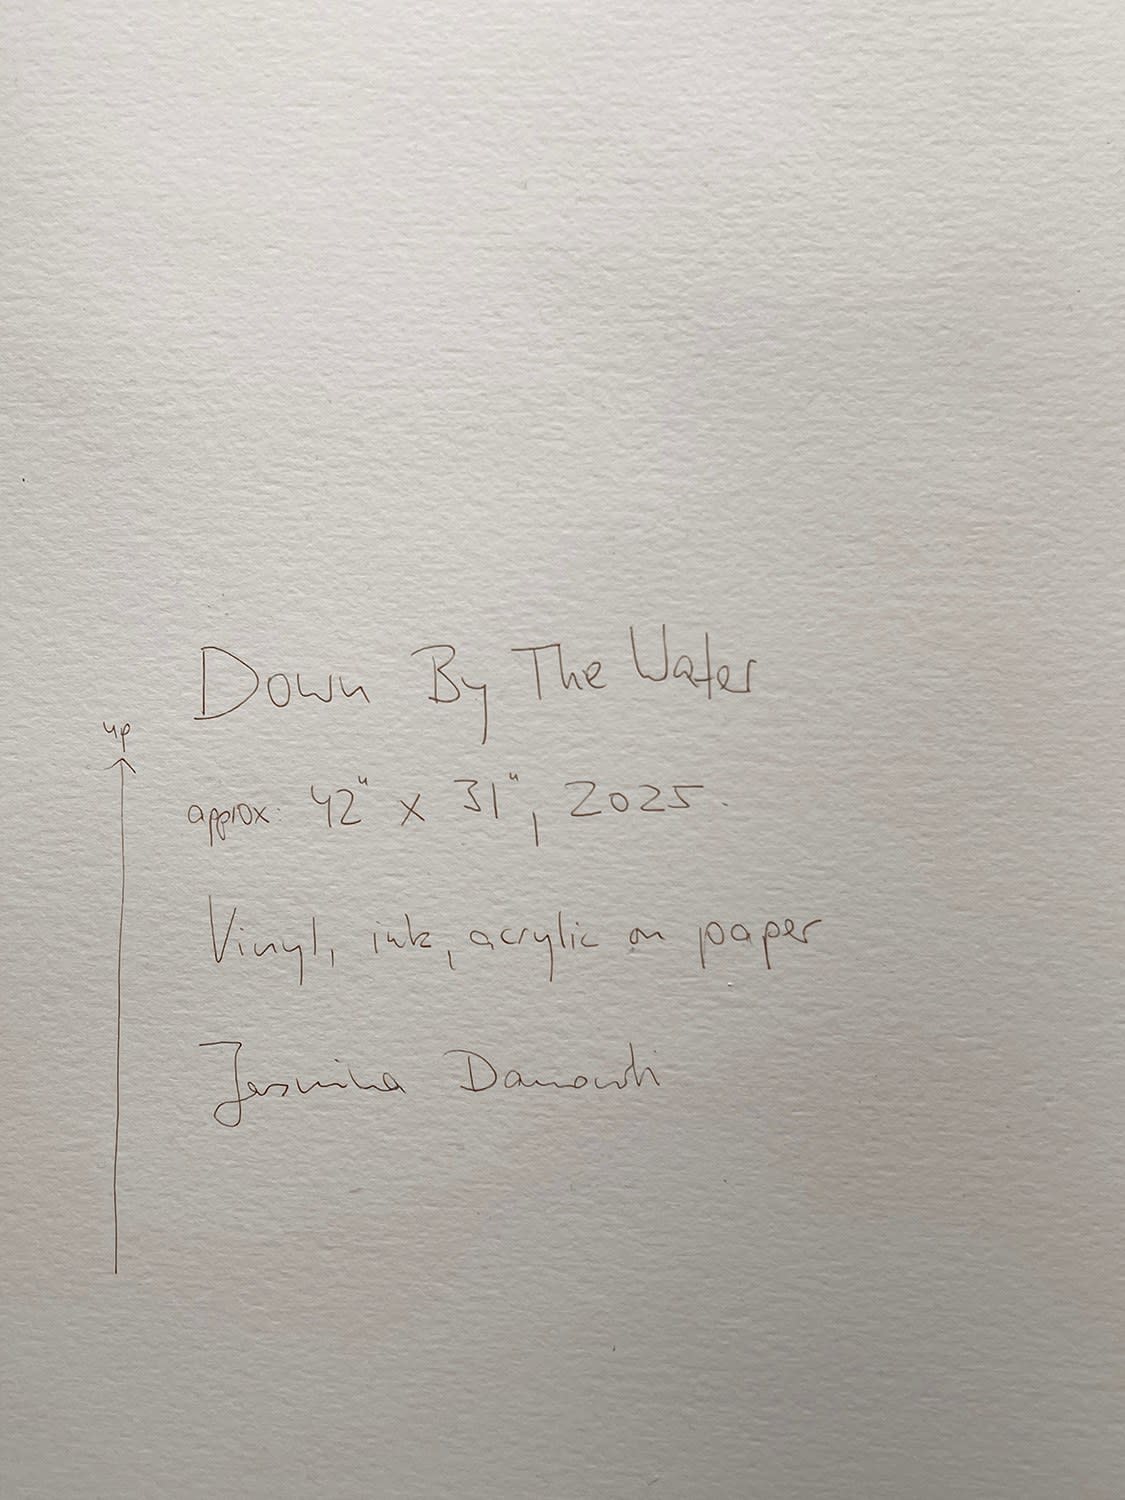 Down By The Water
up
approx. 42" x 31", 2025.
Vinyl, ink, acrylic on paper
Jasmina Danowski